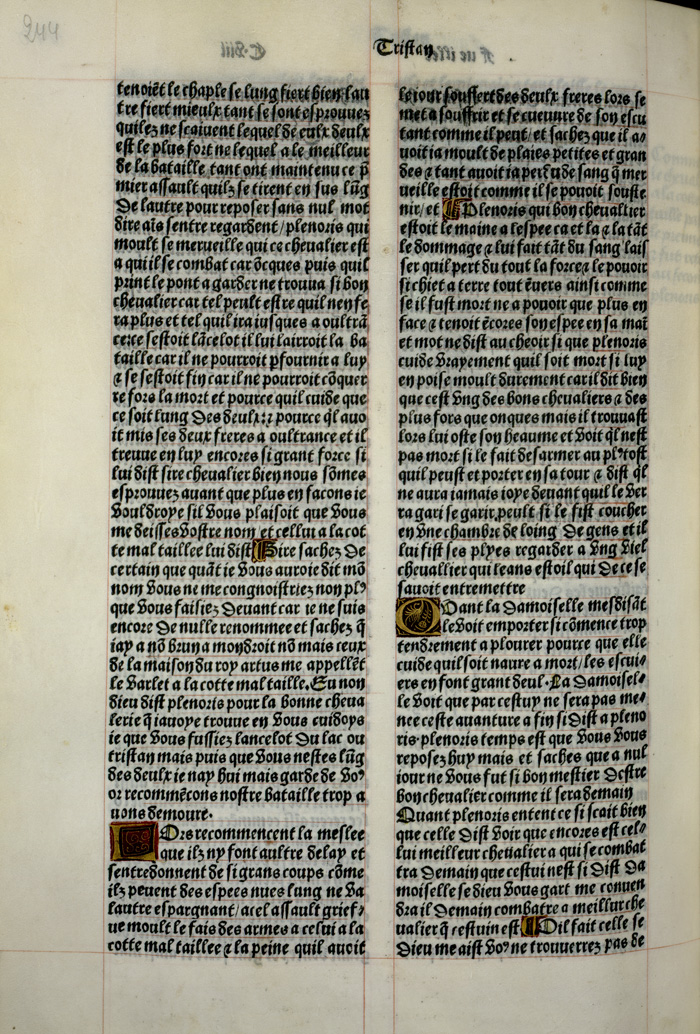 244
Tristan
tenoiẽt le chaple se lung fiert bien lau
tre fiert mieulx tant se sont esprouuez
quilez ne scaiuent lequel de eulx deulx
est le plus fort ne lequel a le meilleur
de la bataille tant ont maintenu ce p̃
mier assault quilz se tirent en sus lũg
De lautre pour reposer sans nul mot
dire ais sentre regardent/ plenoris qui
moult se merueille qui ce cheualier est
a qui il se combat car õcques puis quil
print le pont a garder ne trouua si bon
cheualier car tel peult estre quil nen fe
ra plus et tel quil ira iusques a oultrã
ce/ce sestoit lãcelot il lui lairroit la ba
taille car il ne pourroit p̱fournir a luy
⁊ se sestoit fin car il ne pourroit cõquer
re fors la mort et pource quil cuide que
ce soit lung Des deulx⁊ pource q̃l auo
it mis ses deux freres a oultrance et il
treuue en luy encores si grant force si
lui dist sire cheualier bien nous sõmes
esprouuez auant que plus en facons ie
Vouldroye sil Vous plaisoit que Vous
me deissez Vostre nom et cellui a la cot
te mal taillee lui dist Sire sachez De
certain que quãt ie Vous auroie dit mõ
nom Vous ne me congnoistriez non plꝰ
que Vous faisiez Deuant car ie ne suis
encore De nulle renommee et sachez q̃
iay a nõ brun a mon droit nõ mais ceux
de la maison du roy artus me appellẽt
le Varlet a la cotte mal taille. En non
dieu dist plenoris pour la bonne cheua
lerie q̃ iauoye trouue en Vous cuidoys
ie que Vous fussiez lancelot Du lac ou
tristan mais puis que Vous nestes lũg
des deulx ie nay hui mais garde de Voꝰ
or recommẽcons nostre bataille trop a
uons demoure.
LOrs recommencent la meslee
que ilz ny font aultre delay et
sentredonnent de si grans coups cõme
ilz peuent des espees nues lung ne Va
lautre espargnant/ a cel assault grief⸗
ue moult le fais des armes a celui a la
cotte mal taillee ⁊ la peine quil auoit
le iour souffert des deulx freres lors se
met a souffrir et se cueuure de son escu
tant comme il peut/ et sachez que il a⸗
uoit ia moult de plaies petites et gran
des ⁊ tant auoit ia perdu de sang q̃ mer
ueille estoit comme il se pouoit souste
nir/ et Plenoris qui bon cheualier
estoit le maine a lespee ca et la ⁊ la tãt
le dommage ⁊ lui fait tãt du sang lais
ser quil pert du tout la force ⁊ le pouoir
si chiet a terre tout ẽuers ainsi comme
se il fust mort ne a pouoir que plus en
face ⁊ tenoit ẽcores son espee en sa maĩ
et mot ne dist au cheoir si que plenoris
cuide Vrayement quil soit mort si luy
en poise moult durement car il dit bien
que cest Vng des bons cheualiers ⁊ des
plus fors que onques mais il trouuast
lors lui oste son heaume et Voit q̃l nest
pas mort si le fait desarmer au plꝰtost
quil peust et porter en sa tour ⁊ dist q̃l
ne aura iamais ioye deuant quil le Ver
ra gari se garir peult si le fist coucher
en Vne chambre de loing De gens et il
lui fist ses plyes regarder a Vng Viel
cheuallier qui leans estoil qui De ce se
sauoit entremettre
QUant la Damoiselle mesdisãt
le Voit emporter si cõmence trop
tendrement a plourer pource que elle
cuide quil soit naure a mort/ les escui⸗
ers en font grant deul. La Damoisel⸗
le Voit que par cestuy ne sera pas me⸗
nee ceste auanture a fin si Dist a pleno
ris. plenoris temps est que Vous Vous
reposez huy mais et saches que a nul
iour ne Vous fut si bon mestier Destre
bon cheualier comme il sera demain
Quant plenoris entent ce si scait bien
que celle Dist Voir que encores est cel⸗
lui meilleur cheualier a qui se combat
tra Demain que cestui nest si Dist Da
moiselle se dieu Vous gart me conuen
dra il Demain combatre a meillur che
ualier q̃ cestuin est Oil fait celle se
Dieu me aist Voꝰ ne trouuerrez pas de